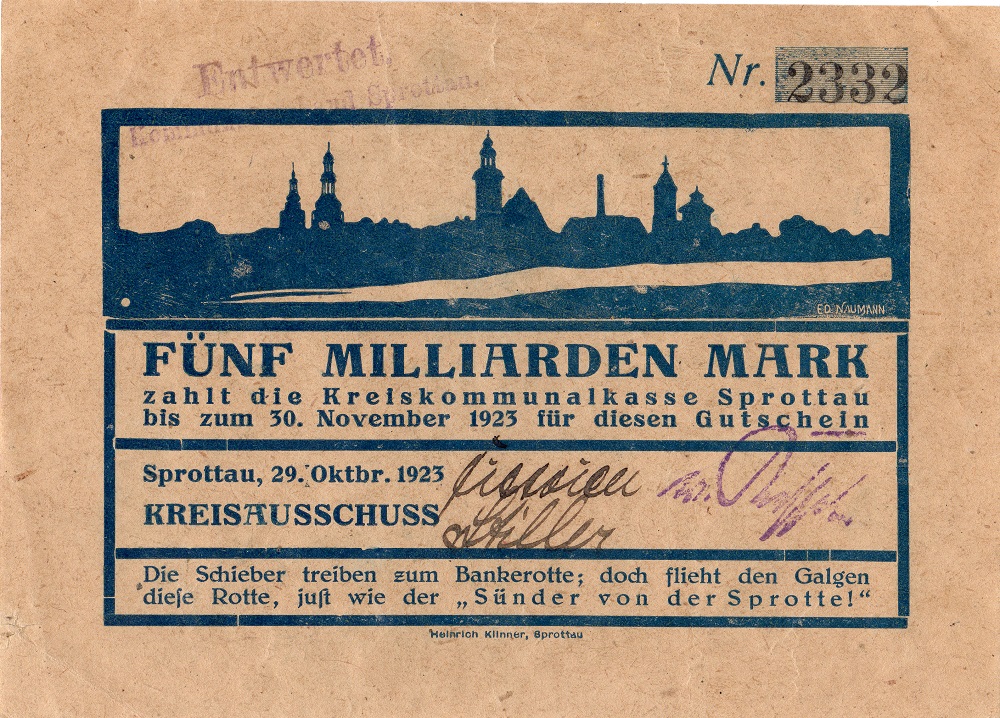 Entwertet,
Sprottau.
Nr. 2332
ED. NAUMANN
FÜNF MILLIARDEN MARK
zahlt die Kreiskommunalkasse Sprottau
bis zum 30. November 1923 für diesen Gutschein
Sprottau, 29. Oktbr. 1923
KREISAUSSCHUSS
Stiller
Die Schieber treiben zum Bankerotte; doch flieht den Galgen
dieſe Rotte, juſt wie der „Sünder von der Sprotte!“
Heinrich Klinner, Sprottau